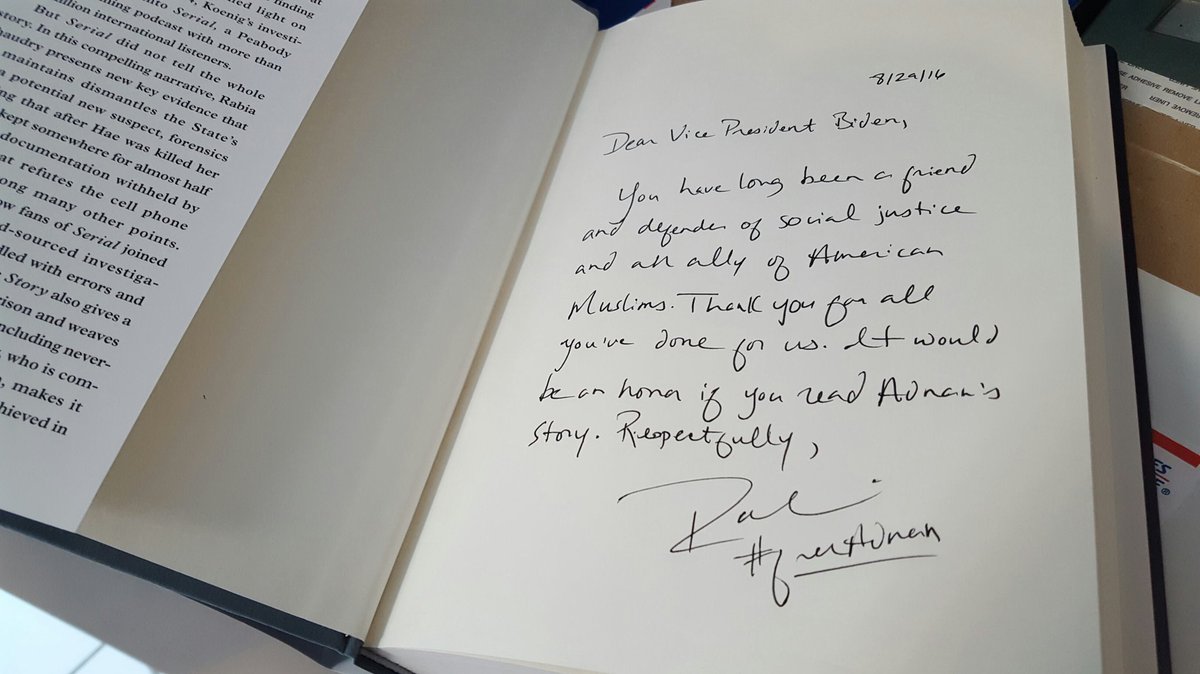 finding
ed light on
nto Serial, a Peabody
, Koenig's investi-
ning podcast with more than
illion international listeners.
But Serial did not tell the whole
story. In this compelling narrative, Rabia
haudry presents new key evidence that
maintains dismantles the State's
a potential new suspect, forensics
ng that after Hae was killed her
kept somewhere for almost half
documentation withheld by
at refutes the cell phone
ong many other points.
ow fans of Serial joined
d-sourced investiga-
lled with errors and
Story also gives a
rison and weaves
including never-
, who is com-
, makes it
hieved in
8/29/16
Dear Vice President Biden,
You have long been a friend
and defender of social justice
and an ally of American
Muslims. Thank you for all
you've done for us. It would
be an honor if you read Adnan's
story. Respectfully,
Rabia
#freeAdnan
ADHESIVE REMOVE
REMOVE LINER
ES